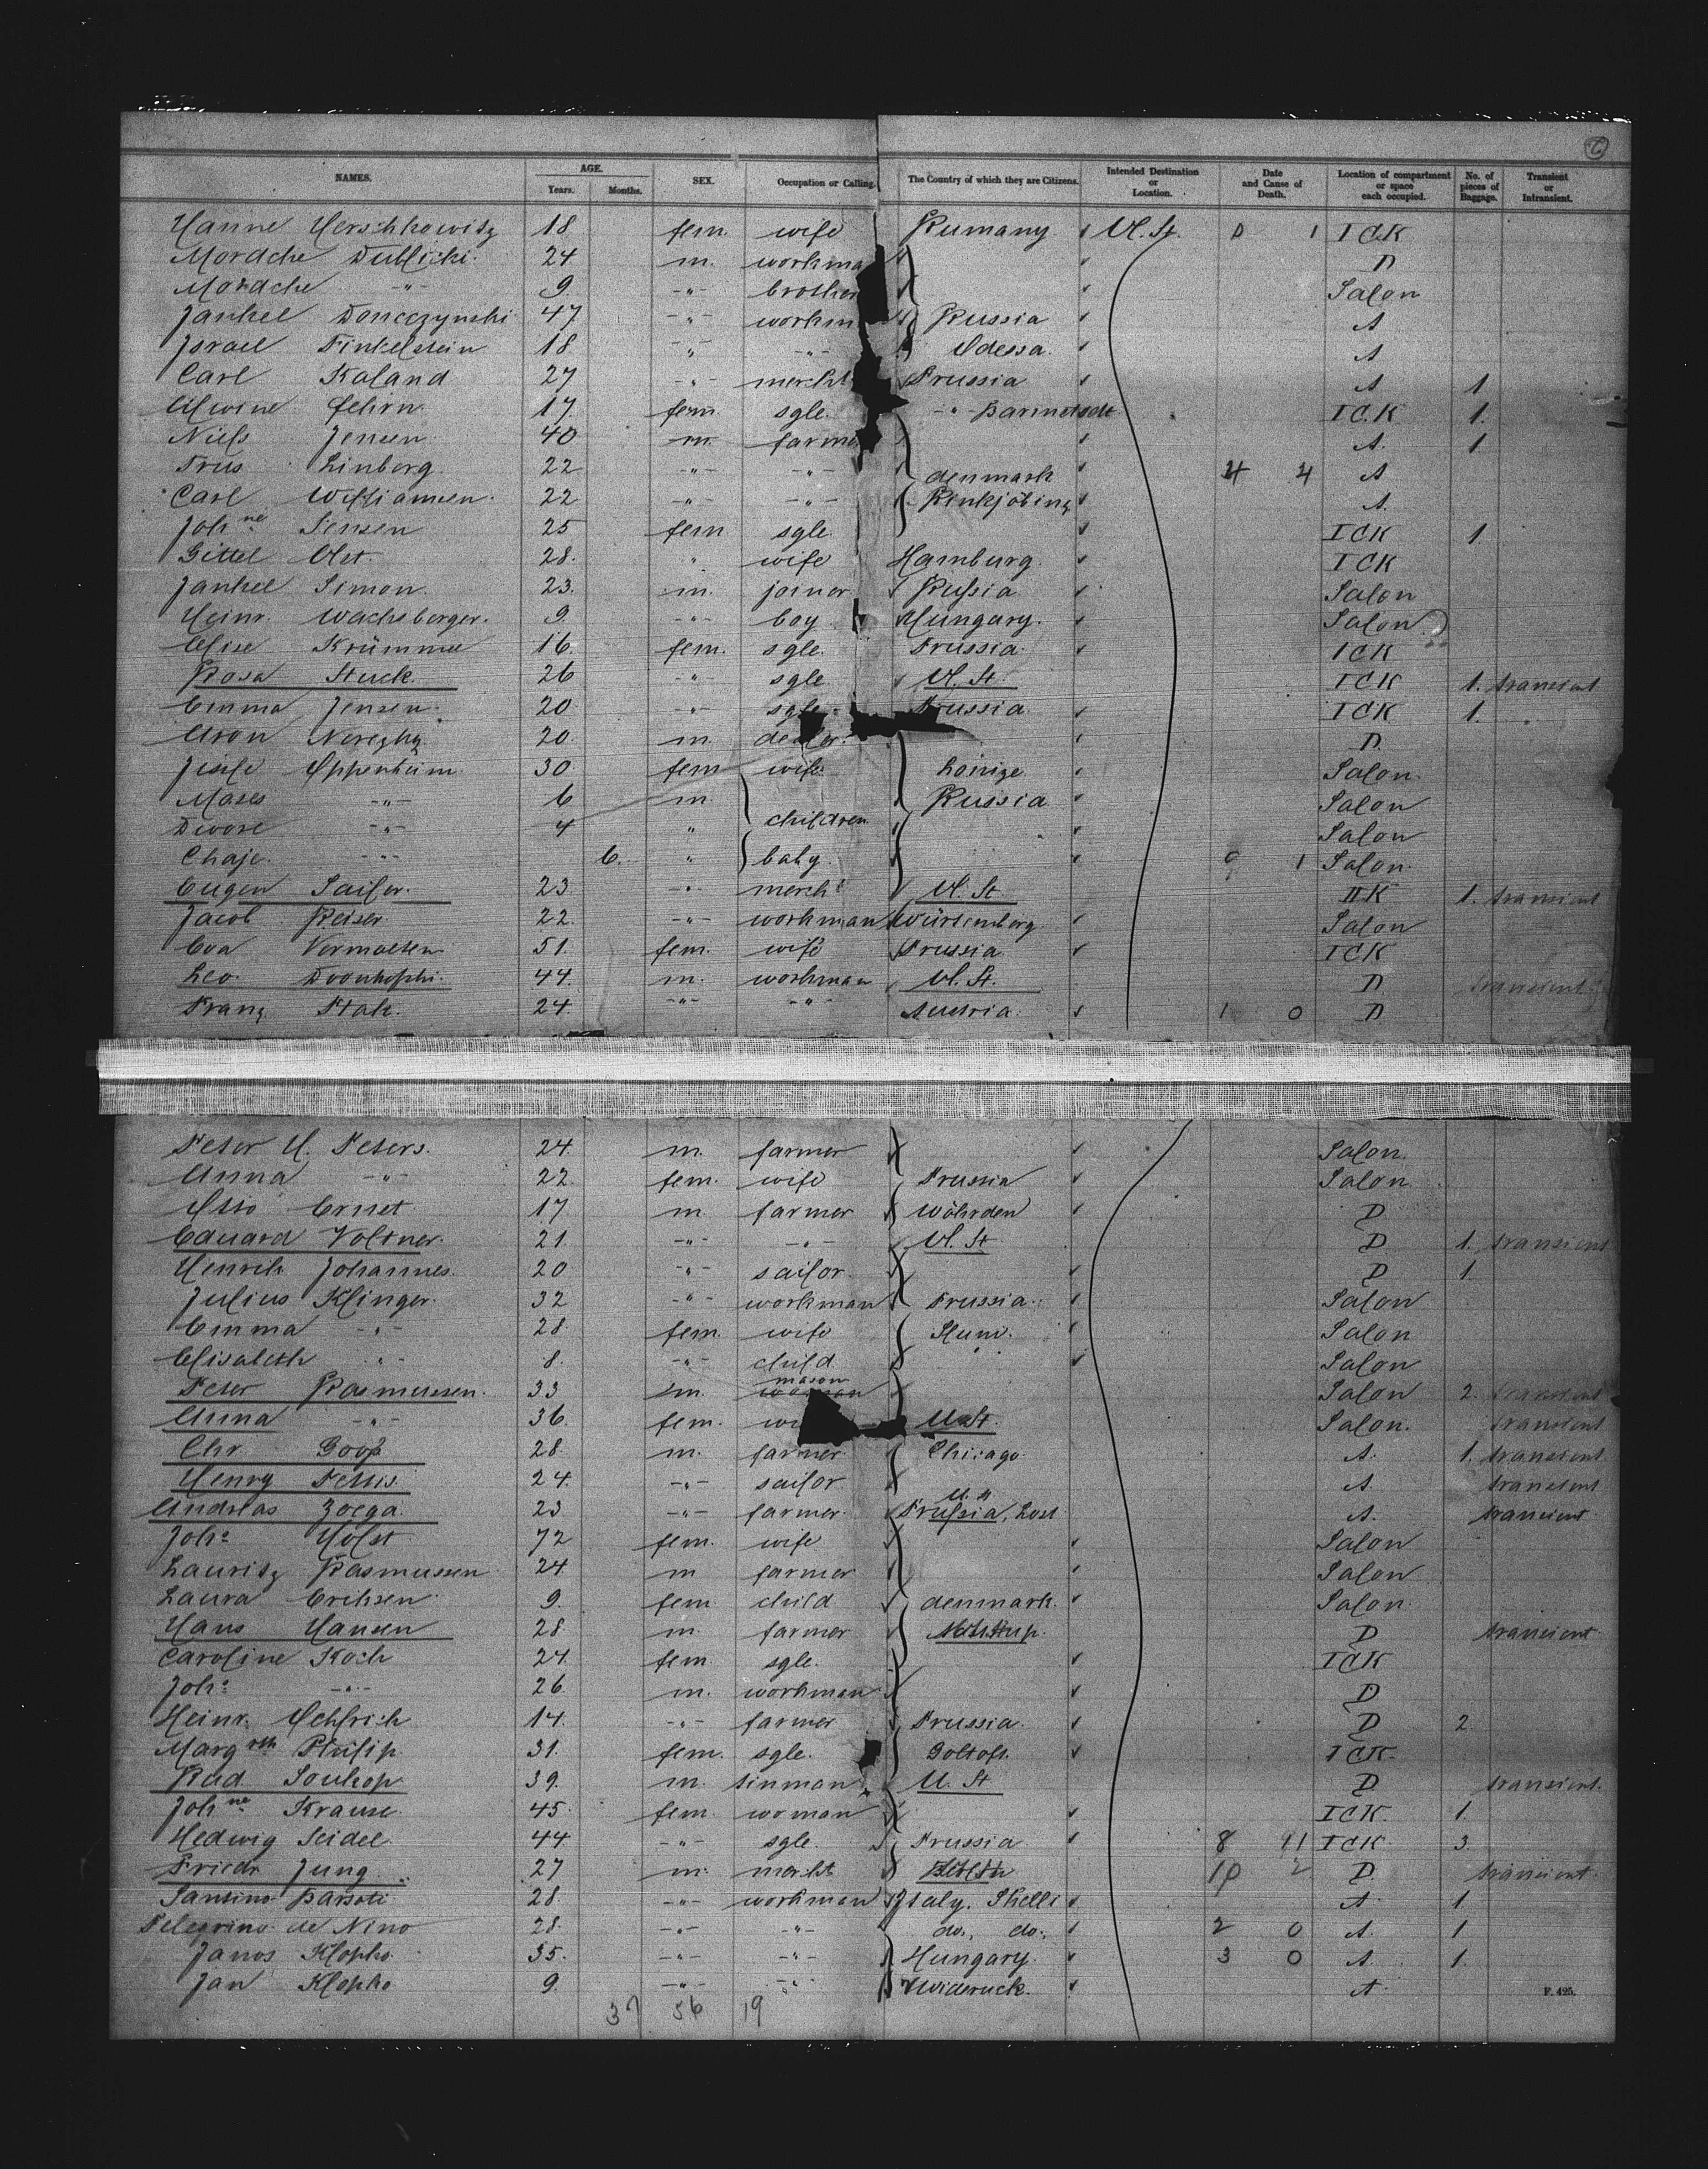 6
NAMES. AGE. Years. Months. SEX. Occupation or Calling. The Country of which they are Citizens. Intended Destination or Location. Date and Cause of Death. Location of compartment or space each occupied. No. of pieces of Baggage. Transient or Intransient.
Hanne Herschkowitz 18 fem. wife Rumany U. St. D 1 I C.K
Mordche Dublicki 24 m. workma D
Mordche -"- 9. -"- brother Salon
Jankel 47 -"- workm Russia A
Israel Finkelstein 18 " -"- Odessa. A
Carl Kaland 27 -"- mercht Prussia A 1
Alwine Fehrn 17. fem sgle. -"- I C.K 1.
Niels Jensen 40 m farme A. 1
Linberg 22 -"- -"- denmark 4 4 A
Carl Williamsen 22 -"- -"- Rinkjöbing A.
Joh ne Jensen 25 fem sgle. I C K 1.
Gittel 28. " wife Hamburg. I C K
Jankel Simon. 23. m. joiner Russia Salon
Heinr. Wachsberger. 9. -"- boy Hungary. Salon
Elise Krümmel 16. fem. sgle. Prussia. I C K
Rosa Stuck. 26 -"- sgle U. St. I C K 1. transient
Emma Jensen 20 -"- sgle Prussia I C K 1.
Aron 20. m. dealer. D.
Oppenheim 30 fem wife Salon.
Moses -"- 6 m. Russia Salon
Dwore -"- 4 " children Salon
Chaje. -"- 6. " baby. 9 1 Salon.
Eugen Sailer. 23 -"- mercht U. St IIK 1. transient
Jacob Reiser 22. -"- workman Würtemberg Salon
Eva Vermoelsen 51. fem. wife Prussia I C K
Leo 44. m. workman U. St. D transient.
Franz Ptak. 24. -"- -"- Austria. 1 0 D
Peter H. Peters. 24. m. farmer Salon.
Anna -"- 22. fem. wife Prussia Salon
Otto Ernst 17 m farmer Wöhrden D
Eduard Voltner. 21. -"- -"- U. St D. 1. transient
Henrich Johannes. 20 -"- sailor D 1.
Julius Klinger. 32 -"- workman Prussia. Salon
Emma -"- 28. fem. wife Stum. Salon
Elisabeth -"- 8. -"- child Salon
mason
Peter Rasmussen. 33 m. Salon 2. transient
Anna -"- 36. fem. wi U. St. Salon. transient
Chr. Goos 28. m. farmer. Chicago A. 1. transient
Henry 24. -"- sailor A. transient
Andreas Zoega. 23 -"- farmer. Prussia, A. transient
Joh. Holst 72 fem. wife Salon
Lauritz Rasmussen 24. m farmer Salon
Laura Erichsen 9. fem child denmark. Salon
Hans Hansen 28 m. farmer D transient
Caroline Koch 24. fem. sgle. I C K
Joh. -"- 26. m. workman D
Heinr. Oehlrich 14. -"- farmer Prussia. D 2.
Marg reth Philip 31. fem. sgle. Goltoft. I C K
Rud. Soukop 39. m. tinman U. St D transient.
Joh ne Krause. 45. fem. woman I C K. 1.
Hedwig Seidel. 44. -"- sgle. Prussia 8 11 I C K 3.
Friedr. Jung 27 m. mercht 10 2 D. transient
Santino Barsoti 28. -"- workman Italy. A. 1
Pelegrino de Nino 28. -"- -"- do., do. 2 0 A. 1
Janos Klopko 35. -"- -"- Hungary. 3 0 A. 1.
Jan Klopko 9. -"- -"- A.
37 56 19
F. 425.